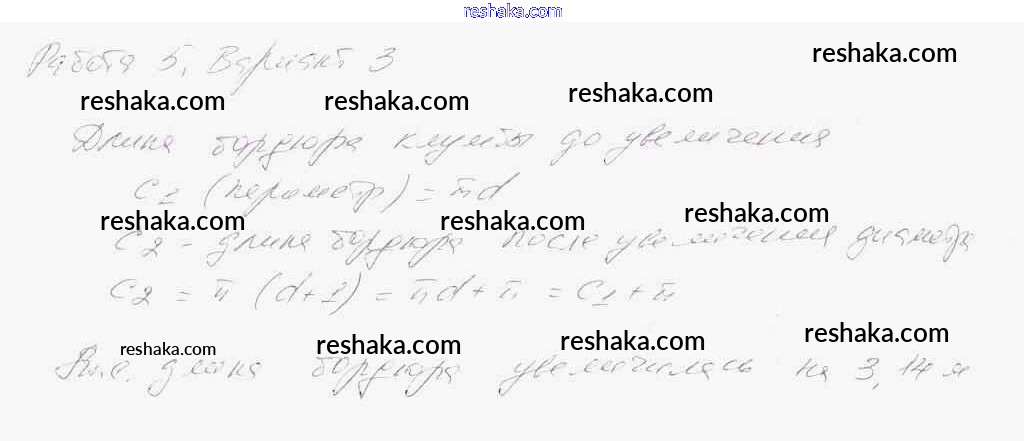 reshaka.com
Работа 5, Вариант 3
reshaka.com
reshaka.com reshaka.com reshaka.com
Длина бордюра клумбы до увеличения
C₁ (периметр) = πd
reshaka.com reshaka.com reshaka.com
C₂ - длина бордюра после увеличения диаметра
C₂ = π (d+1) = πd + π = C₁ + π
reshaka.com reshaka.com reshaka.com reshaka.com
Т.е. длина бордюра увеличилась на 3,14 м